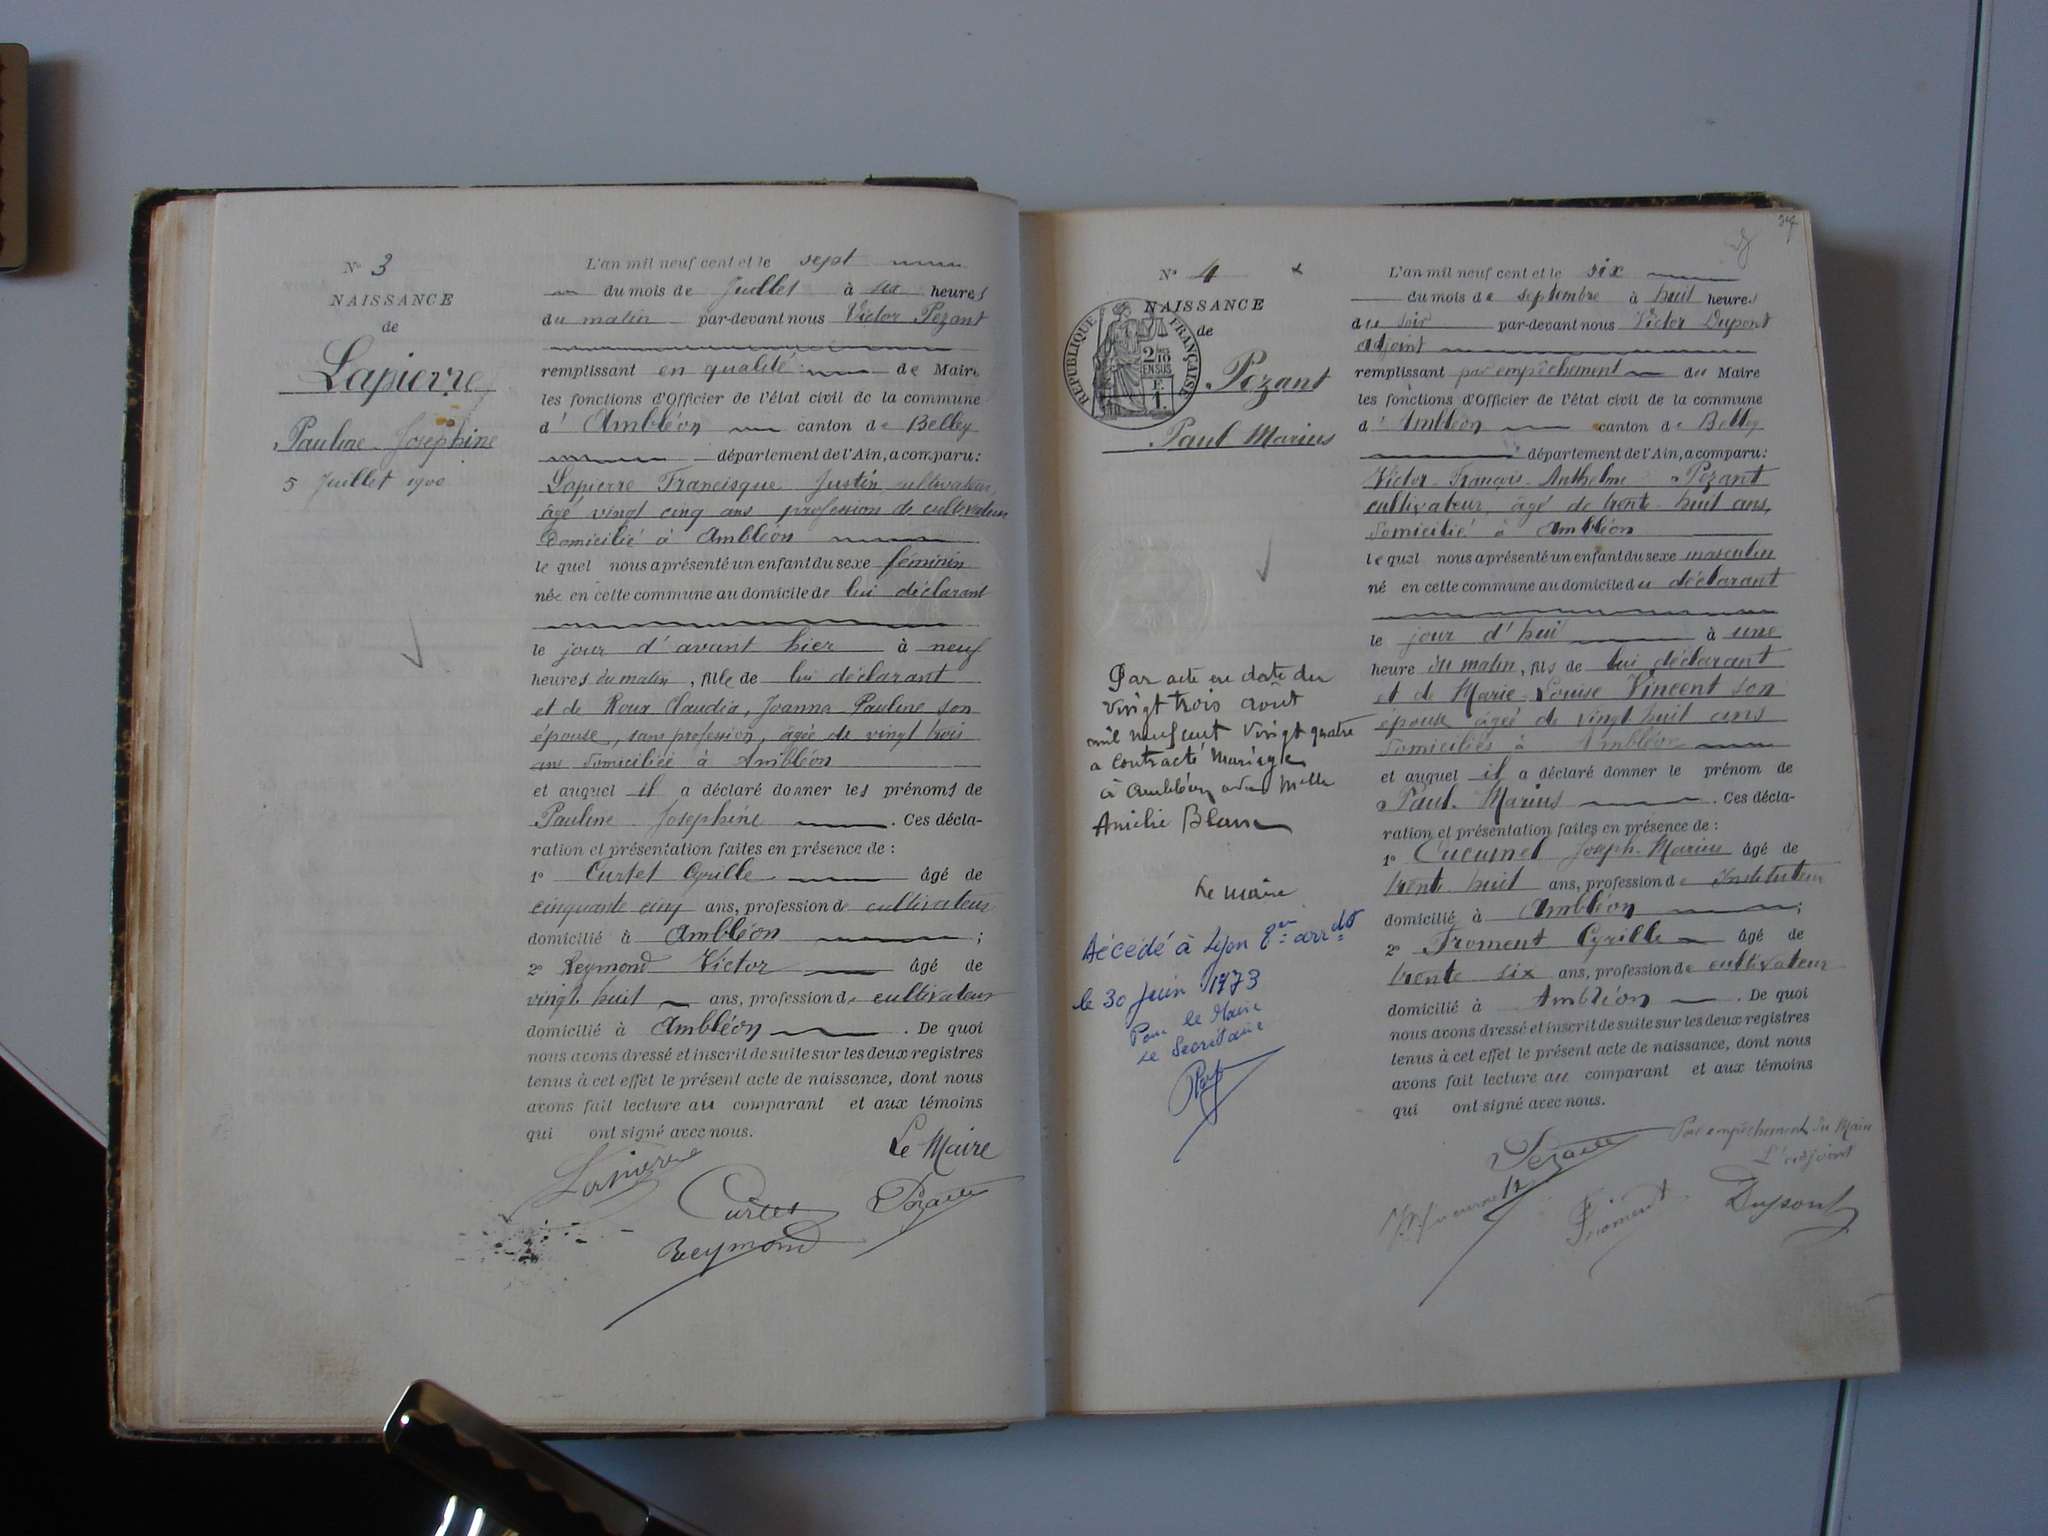 N° 3
NAISSANCE
de
Lapierre
Pauline Josephine
5 Juillet 1900
L'an mil neuf cent et le sept
du mois de Juillet à six heures
du matin par-devant nous Victor Pezant
remplissant en qualité de Maire
les fonctions d'Officier de l'état civil de la commune
d' Ambléon canton de Belley
département de l'Ain, a comparu:
Lapierre Francisque Justin, cultivateur,
âgé vingt cinq ans profession de cultivateur
domicilié à Ambléon
le quel nous a présenté un enfant du sexe féminin
née en cette commune au domicile de lui déclarant
le jour d'avant hier à neuf
heures du matin, fille de lui déclarant
et de Roux Claudia, Joanna Pauline son
épouse, sans profession, âgée de vingt trois
ans domiciliée à Ambléon
et auquel il a déclaré donner les prénoms de
Pauline Josephine. Ces décla-
ration et présentation faites en présence de:
1° Curtet Cyrille âgé de
cinquante cinq ans, profession de cultivateur
domicilié à Ambléon;
2° Reymond Victor âgé de
vingt huit ans, profession de cultivateur
domicilié à Ambléon. De quoi
nous avons dressé et inscrit de suite sur les deux registres
tenus à cet effet le présent acte de naissance, dont nous
avons fait lecture au comparant et aux témoins
qui ont signé avec nous.
Le Maire
Lapierre
Curtet
Pezant
Reymond
N° 4
NAISSANCE
de
RÉPUBLIQUE FRANÇAISE
2/10 EN SUS
Pezant
Paul Marius
Par acte en date du
vingt trois août
mil neuf cent vingt quatre
a contracté mariage
à Ambléon avec Melle
Amélie Blanc
Le maire
Décédé à Lyon 8em arrdt
le 30 Juin 1973
Pour le Maire
le Secrétaire
L'an mil neuf cent et le six
du mois de septembre à huit heures
du soir par-devant nous Victor Dupont
adjoint
remplissant par empêchement du Maire
les fonctions d'Officier de l'état civil de la commune
d' Ambléon canton de Belley
département de l'Ain, a comparu:
Victor-François-Anthelme Pezant
cultivateur, âgé de trente-huit ans,
domicilié à Ambléon
le quel nous a présenté un enfant du sexe masculin
né en cette commune au domicile du déclarant
le jour d'hui à une
heure du matin, fils de lui déclarant
et de Marie-Louise Vincent son
épouse âgée de vingt huit ans
domiciliés à Ambléon
et auquel il a déclaré donner le prénom de
Paul-Marius. Ces décla-
ration et présentation faites en présence de:
1° Cucurnel Joseph-Marius âgé de
trente-huit ans, profession de Instituteur
domicilié à Ambléon;
2° Froment Cyrille âgé de
trente six ans, profession de cultivateur
domicilié à Ambléon. De quoi
nous avons dressé et inscrit de suite sur les deux registres
tenus à cet effet le présent acte de naissance, dont nous
avons fait lecture au comparant et aux témoins
qui ont signé avec nous.
Par empêchement du Maire
L'adjoint
Pezant
Froment
Dupont